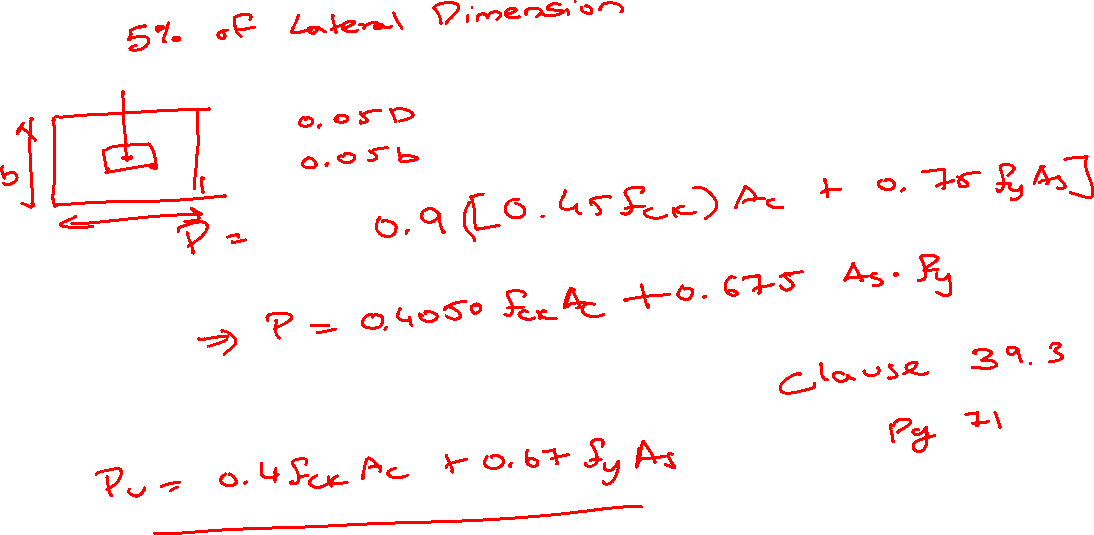 5% of Lateral Dimension
0.05D
0.05b
b
P = 0.9 ([0.45 fck) Ac + 0.75 fy As]
⇒ P = 0.4050 fck Ac + 0.675 As. fy
Clause 39.3
Pg 71
Pu = 0.4 fck Ac + 0.67 fy As